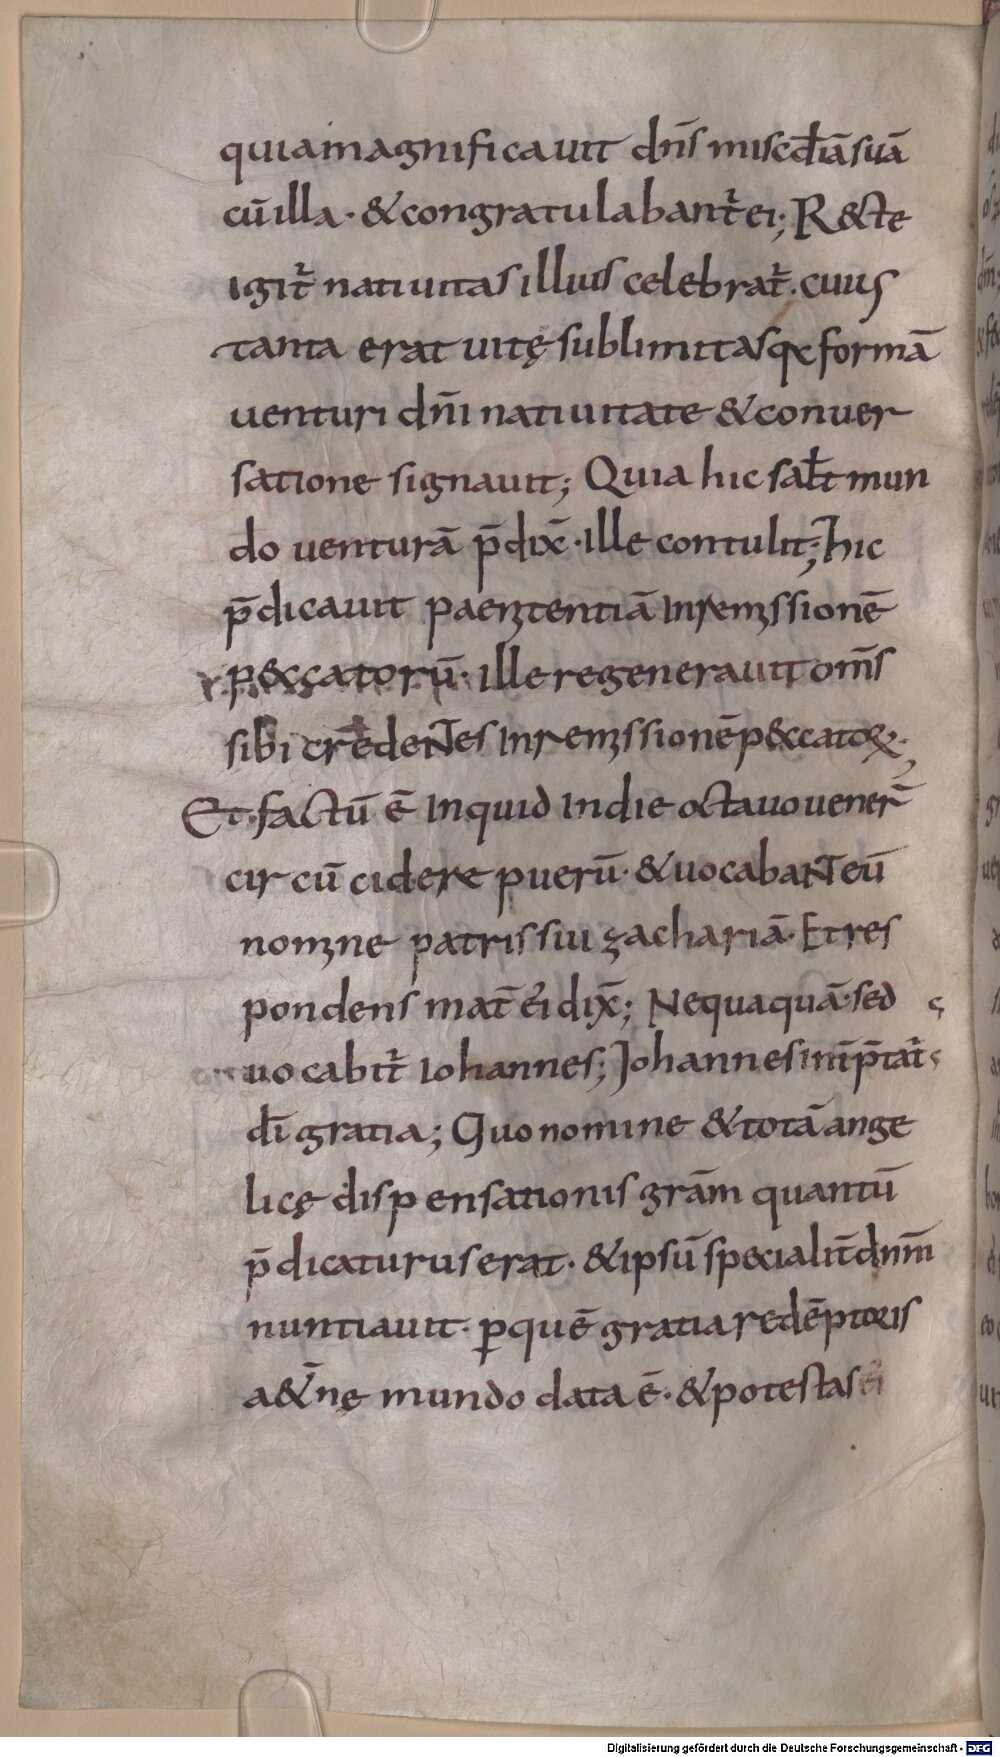 quia magnificauit dn̄s misc̄diā suā
cū illa · & congratulabant̄ ei; R&cte
igit̄ natiuitas illius celebrat̄ · cuius
tanta erat uitę sublimitas q̄ & formā
uenturi dn̄i natiuitate & conuer
satione signauit; Quia hic sal̄t mun
do uenturā p̄dix̄ · ille contulit; hic
p̄dicauit paenitentiā In remissionē
p&ccatorū · ille regenerauit om̄s
sibi credentes In remissionē p&ccatoꝝ;
Et factū ē Inquid In die octauo uener̄
circūcidere puerū · & uocabant eū
nomine patris sui zachariā · Et res
pondens mat̄ ei dix̄; Nequaquā · sed
uocabit̄ Iohannes; Johannes int̄p̄tat̄
dī gratia; Quo nomine & totā ange
licę dispensationis grām quantū
p̄dicaturus erat · & ipsū specialit̄ dnm̄
nuntiauit · ꝑ quē gratia redēptoris
a&̄nę mundo data ē · & potestas
Digitalisierung gefördert durch die Deutsche Forschungsgemeinschaft - DFG